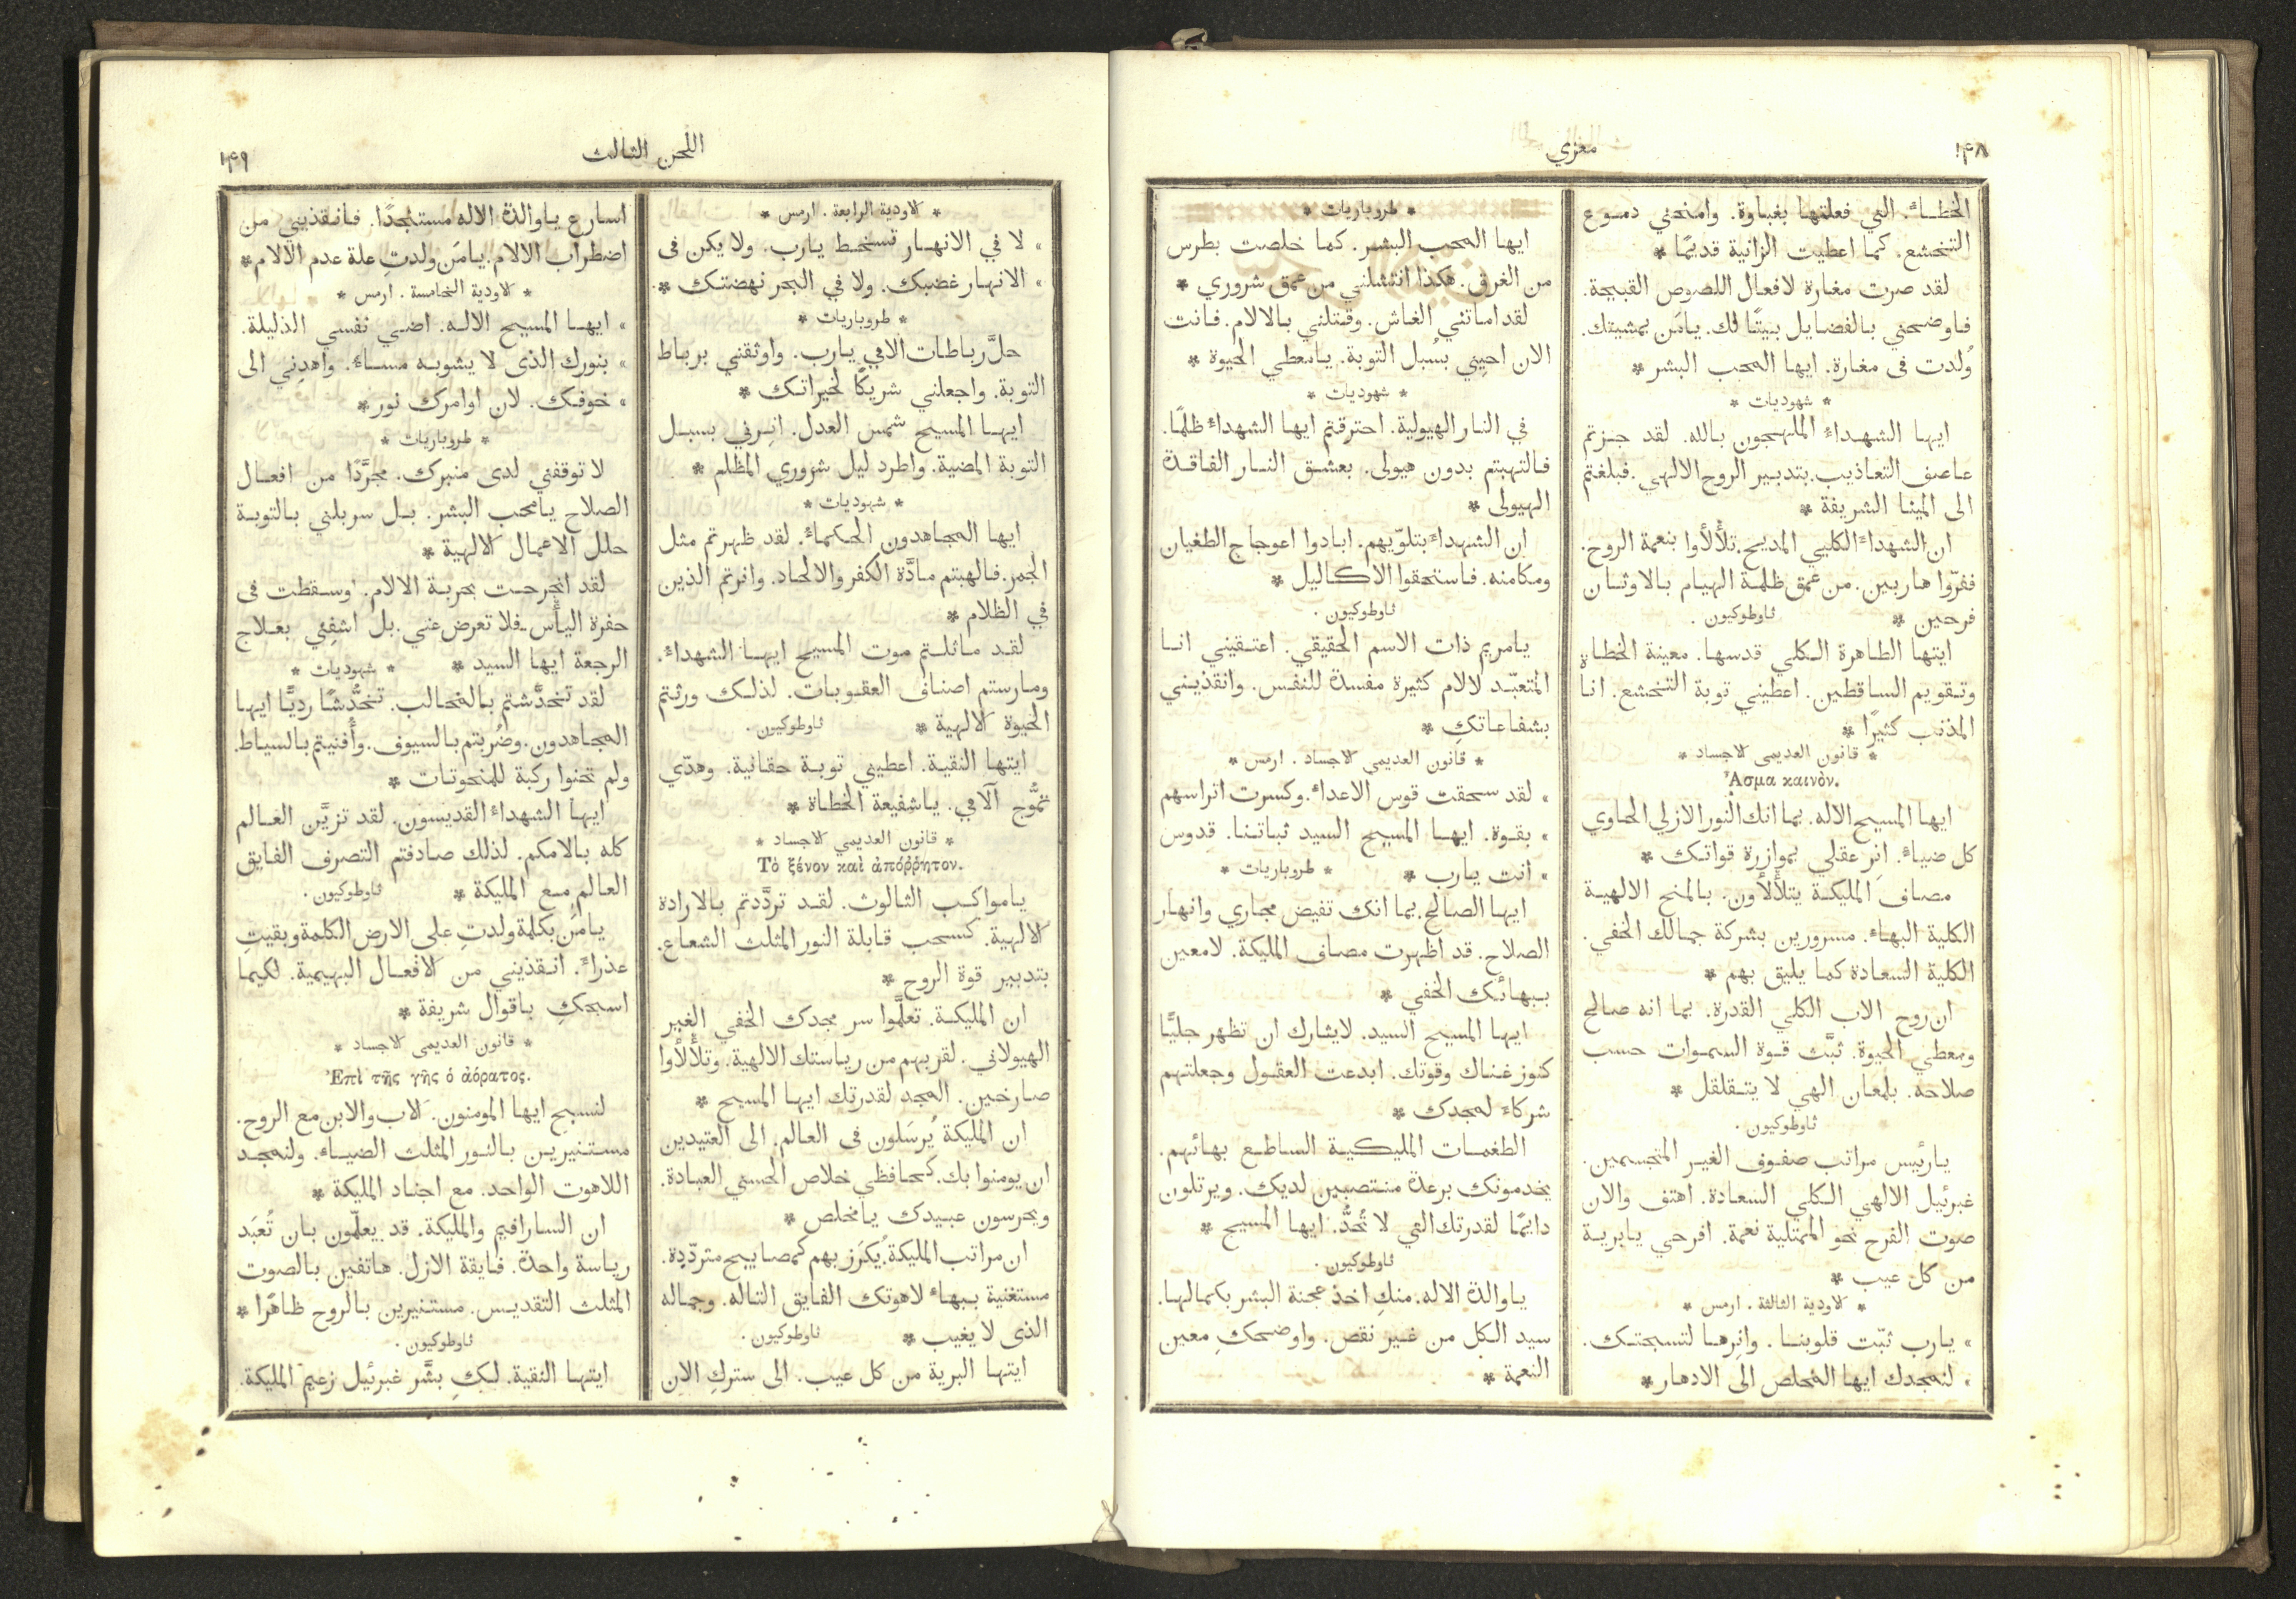 ١٤٨
معزي
الخطاء. التي فعلتها بغباوة. وامنحني دموع
التخشع. كما اعطيت الزانية قديمًا *
لقد صرت مغارة لافعال اللصوص القبيحة.
فاوضحني بالفضايل بيتًا لك. يامَن بمشيتك.
وُلدت فى مغارة. ايها المحب البشر *
* شهوديات *
ايها الشهداء الملهجون بالله. لقد جزتم
عاصف التعاذيب. بتدبير الروح الالهي. فبلغتم
الى المينا الشريفة *
ان الشهداء الكليي المديح. تلألأوا بنعمة الروح.
ففرّوا هاربين. من عمق ظلمة الهيام بالاوثان
فرحين * ثاوطوكيون.
ايتها الطاهرة الكلي قدسها. معينة الخطاة
وتقويم الساقطين. اعطيني توبة التخشع. انا
المذنب كثيرًا *
* قانون العديمى الاجساد *
Ἄσμα καινὸν.
ايها المسيح الاله. بما انك النور الازلي الحاوي
كل ضياء. انِر عقلي بموازرة قواتك *
مصاف المليكة يتلألأون. بالمنح الالهية
الكلية البهاء. مسرورين بشركة جمالك الخفي.
الكلية السعادة كما يليق بهم *
ان روح الاب الكلي القدرة. بما انه صالح
ومعطي الحيوة. ثبَّت قوة السموات حسب
صلاحه. بلمعان الهي لا يتقلقل *
ثاوطوكيون.
يارئيس مراتب صفوف الغير المتجسمين.
غبرئيل الالهي الكلي السعادة. اهتف والان
صوت الفرح نحو الممتلية نعمة. افرحي يابرية
من كل عيب *
* الاودية الثالثة. ارمس *
» يارب ثبّت قلوبنا. وانِرها لتسبحتك.
» لنمجدك ايها المخلص الى الادهار *
* طروباريات *
ايها المحب البشر. كما خلصت بطرس
من الغرق. هكذا انتشلني من عمق شروري *
لقد اماتني الغاش. وقتلني بالالام. فانت
الان احيِني بسُبل التوبة. يامعطي الحيوة *
* شهوديات *
في النار الهيولية. احترقتم ايها الشهداء ظلمًا.
فالتهبتم بدون هيولى. بعشق النار الفاقدة
الهيولى *
ان الشهداء بتلوّيهم. ابادوا اعوجاج الطغيان
ومكامنه. فاستحقوا الاكاليل *
ثاوطوكيون.
يامريم ذات الاسم الحقيقي. اعتقيني انا
المتعبّد لالام كثيرة مفسدة للنفس. وانقذيني
بشفاعاتكِ *
* قانون العديمي الاجساد. ارمس *
» لقد سحقت قوس الاعداء. وكسرت اتراسهم
» بقوة. ايها المسيح السيد ثباتنا. قدوس
» انت يارب * * طروباريات *
ايها الصالح. بما انك تفيض مجاري وانهار
الصلاح. قد اظهرت مصاف المليكة. لامعين
ببهائك الخفي *
ايها المسيح السيد. لايشارك ان تظهر جليًّا
كنوز غناك وقوتك. ابدعت العقول وجعلتهم
شركاء لمجدك *
الطغمات المليكية الساطع بهائهم.
يخدمونك برعدة منتصبين لديك. ويرتلون
دايمًا لقدرتك التي لا تُحدُّ. ايها المسيح *
ثاوطوكيون.
ياوالدة الاله. منكِ اخذ عجنة البشر بكمالها.
سيد الكل من غير نقص. واوضحكِ معين
النعمة *
اللحن الثالث
١٤٩
* الاودية الرابعة. ارمس *
» لا في الانهار تسخط يارب. ولا يكن فى
» الانهار غضبك. ولا في البحر نهضتك *
* طروباريات *
حلَّ رباطات الامي يارب. واوثقني برباط
التوبة. واجعلني شريكًا لخيراتك *
ايها المسيح شمس العدل. انِرني بسبل
التوبة المضية. واطرد ليل شروري المظلم *
* شهوديات *
ايها المجاهدون الحكماء. لقد ظهرتم مثل
الجمر. فالهبتم مادَّة الكفر والالحاد. وانرتم الذين
في الظلام *
لقد ماثلتم موت المسيح ايها الشهداء.
ومارستم اصناف العقوبات. لذلك ورثتم
الحيوة الالهية * ثاوطوكيون.
ايتها النقية. اعطيني توبة حقانية. وهدّي
تموُّج آلامي. ياشفيعة الخطاة *
* قانون العديمي الاجساد *
Τὸ ξένον καὶ ἀπόῤῥητον.
يامواكب الثالوث. لقد تردَّدتم بالارادة
الالهية. كسحب قابلة النور المثلث الشعاع.
بتدبير قوة الروح *
ان المليكة. تعلَّموا سر مجدك الخفي الغير
الهيولاني. لقربهم من رياستك الالهية. وتلألأوا
صارخين. المجد لقدرتك ايها المسيح *
ان المليكة يُرسَلون فى العالم. الى العتيدين
ان يومنوا بك. كحافظي خلاص الحسني العبادة.
ويحرسون عبيدك يامخلص *
ان مراتب المليكة. يُكرَز بهم كمصابيح متردّدة.
مستغنية ببهاء لاهوتك الفايق التاله. وجماله
الذى لا يغيب * ثاوطوكيون.
ايتها البرية من كل عيب. الى ستركِ الان
اسارع ياوالدة الاله مستنجدًا. فانقذيني من
اضطراب الالام. يامَن ولدتِ علة عدم الالام *
* الاودية الخامسة. ارمس *
» ايها المسيح الاله. اضي نفسي الذليلة.
» بنورك الذى لا يشوبه مساء. واهدِني الى
» خوفك. لان اوامرك نور *
* طروباريات *
لا توقفني لدى منبرك. مجرَّدًا من افعال
الصلاح يامحب البشر. بل سربلني بالتوبة
حلل الاعمال الالهية *
لقد انجرحت بحربة الالام. وسقطت فى
حفرة اليأس. فلا تعرض عني. بل اشفِني بعلاج
الرجعة ايها السيد * * شهوديات *
لقد تخدَّشتم بالمخالب. تخدُّشًا رديًّا ايها
المجاهدون. وضُربتم بالسيوف. وأُفنيتم بالسياط.
ولم تحنوا ركبة للمنحوتات *
ايها الشهداء القديسون. لقد تزيَّن العالم
كله بالامكم. لذلك صادفتم التصرف الفايق
العالم مع المليكة * ثاوطوكيون.
يامَن بكلمة ولدتِ على الارض الكلمة وبقيتِ
عذراء. انقذيني من الافعال البهيمية. لكيما
اسبحكِ باقوال شريفة *
* قانون العديمى الاجساد *
Ἐπὶ τῆς γῆς ὁ ἀόρατος.
لنسبح ايها المومنون. الاب والابن مع الروح.
مستنيرين بالنور المثلث الضياء. ولنمجد
اللاهوت الواحد. مع اجناد المليكة *
ان السارافيم والمليكة. قد يعلّمون بان تُعبَد
رياسة واحدة. فايقة الازل. هاتفين بالصوت
المثلث التقديس. مستنيرين بالروح ظاهرًا *
ثاوطوكيون.
ايتها النقية. لكِ بشَّر غبرئيل زعيم المليكة.